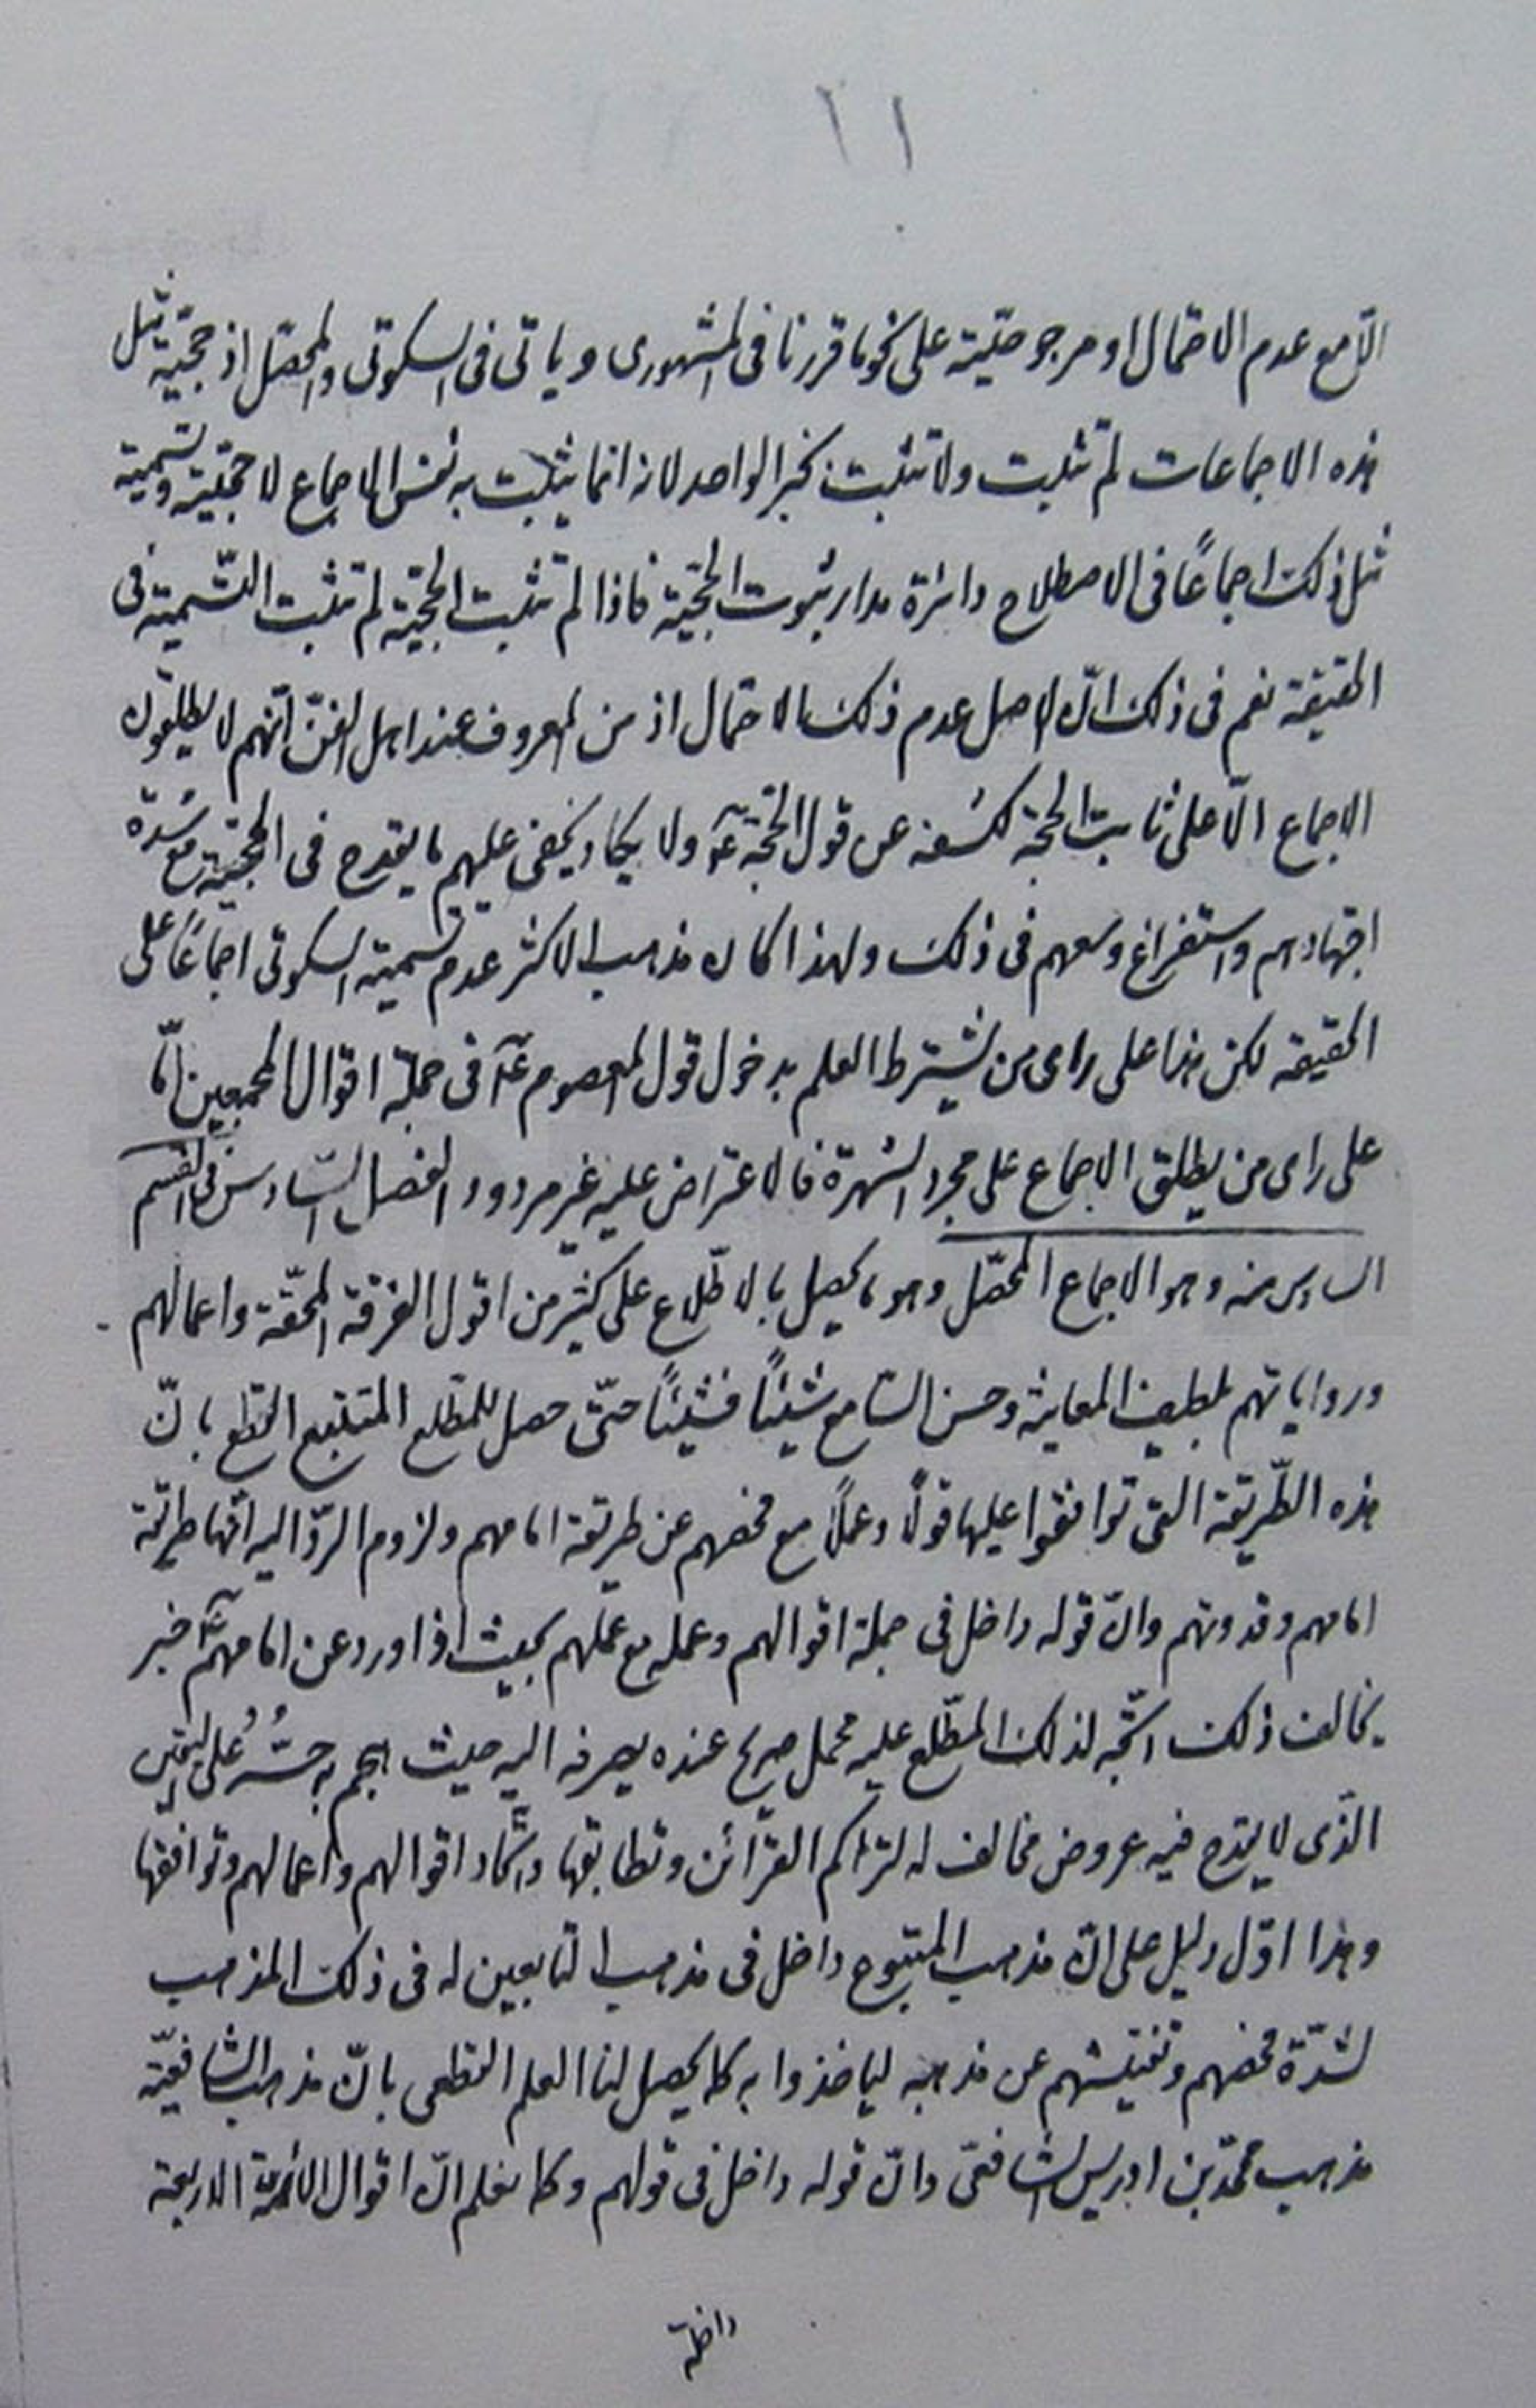 ١١
الّا مع عدم الاحتمال او مرجوحيّته على نحو ما قررنا فى المشهورى وياتى فى السكوتى والمحصّل اذ حجّية مثل
هذه الاجماعات لم تثبت ولا تثبت بخبر الواحد لانه انما يثبت به نفس الاجماع لا حجّيته وتسمية
مثل ذلك اجماعًا فى الاصطلاح دائرة مدار ثبوت الحجّية فاذا لم تثبت الحجّية لم تثبت التّسمية فى
الحقيقة نعم فى ذلك انّ الاصل عدم ذلك الاحتمال اذ من المعروف عند اهل الفنّ انّهم لا يطلقون
الاجماع الّا على ثابت الحجة لكشفه عن قول الحجّة عۤ ولا يكاد يخفى عليهم ما يقدح فى الحجّية مع شدّة
اجتهادهم واستفراغ وسعهم فى ذلك ولهذا كان مذهب الاكثر عدم تسمية السكوتى اجماعًا على
الحقيقه لكن هذا على راى من يشترط العلم بدخول قول المعصوم عۤ فى جملة اقوال المجمعين امّا
على راى من يطلق الاجماع على مجرد الشهرة فالاعتراض عليه غير مردود الفصل السّادس فى القسم
السادس منه وهو الاجماع المحصّل وهو ما يحصل بالاطّلاع على كثير من اقول الفرقة المحقّة واعمالهم
ورواياتهم بلطيف المعاينة وحسن التسامع شيئًا فشيئًا حتّى حصل للمطّلع المتتبع القطع بانّ
هذه الطّريقة التى توافقوا عليها قولًا وعملًا مع فحصهم عن طريقة امامهم ولزوم الردّ اليه انّها طريقة
امامهم وقدوتهم وانّ قوله داخل فى جملة اقوالهم وعمله مع عملهم بحيث اذا ورد عن امامهم عۤ خبر
يخالف ذلك اتّجه لذلك المطّلع عليه محمل صريح عنده يصرفه اليه حيث هجم به حسُّهُ على اليقين
الذّى لا يقدح فيه عروض مخالف له لتراكم القرائن وتطابقها واتّحاد اقوالهم واعمالهم وتوافقها
وهذا اوّل دليل على انّ مذهب المتبوع داخل فى مذهب التابعين له فى ذلك المذهب
لشدّة فحصهم وتفتيشهم عن مذهبه لياخذوا به كما يحصل لنا العلم القطعى بانّ مذهب الشافعيّة
مذهب محمّد بن ادريس الشافعىّ وانّ قوله داخل فى قولهم وكما نعلم انّ اقوال الائمة الاربعة
داخلة